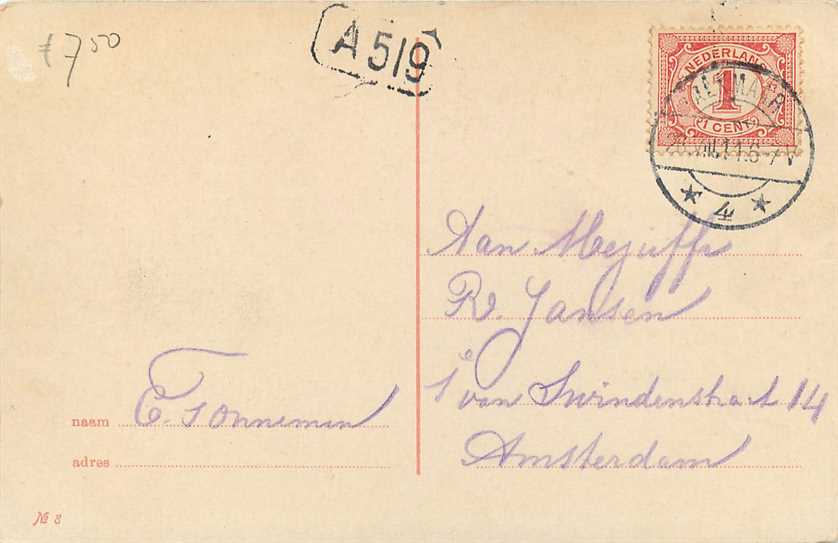 f 7 50
A 519
NEDERLAND
1
1 CENT
4
Aan Mejuffr
R. Jansen
1e van Swindenstraat 14
Amsterdam
naam C. Tonneman
adres
№ 8